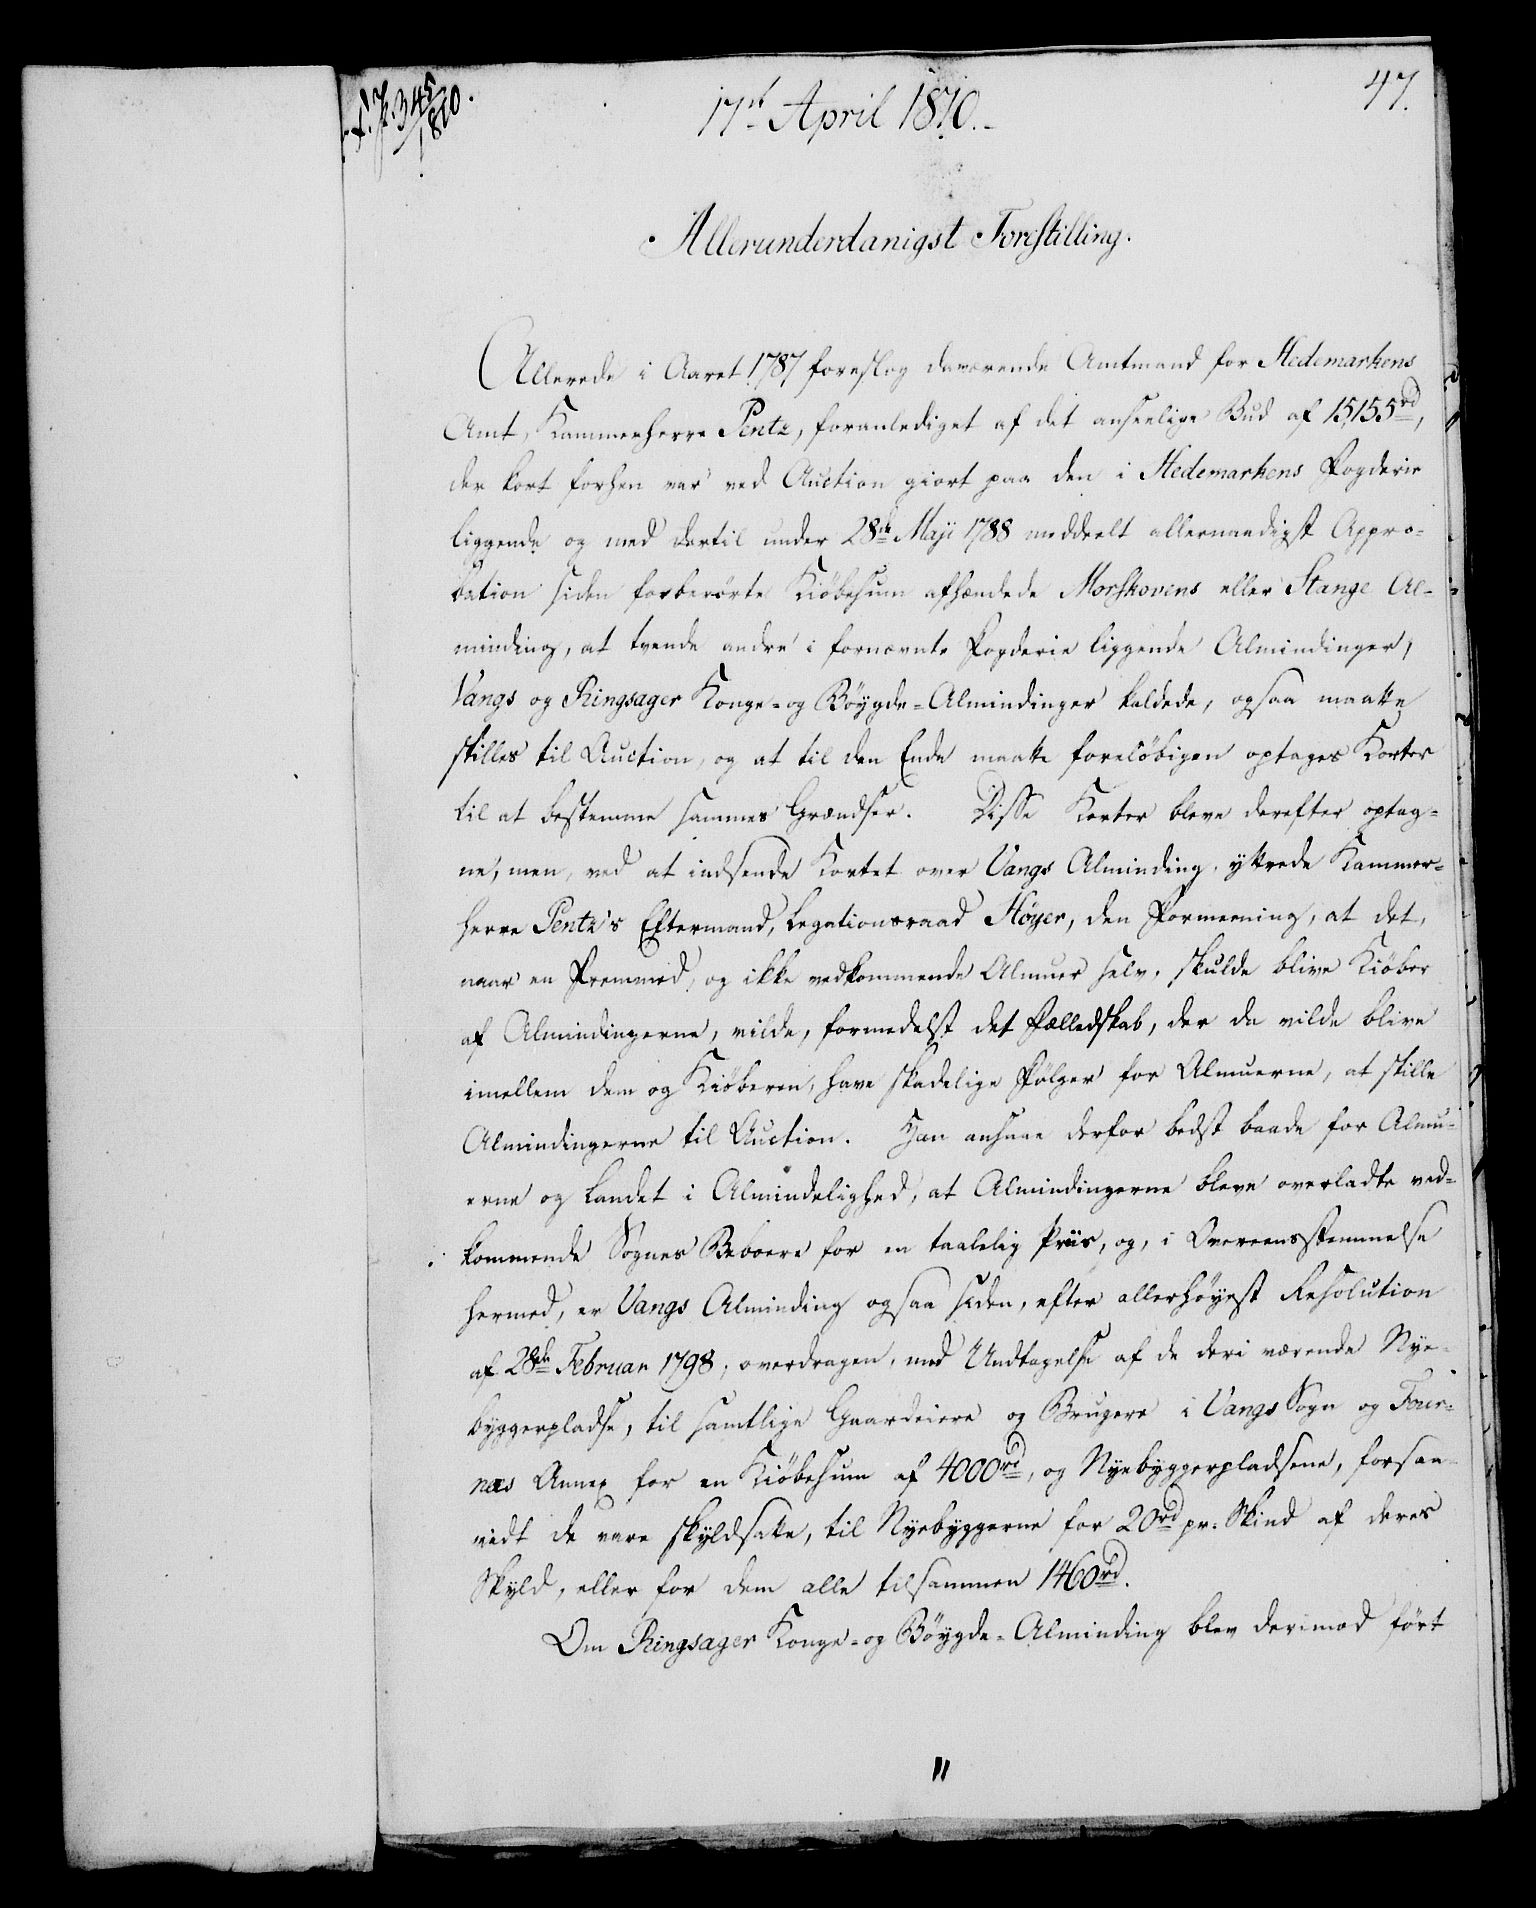 47.
17d April 1810.
Allerunderdanigst Forestilling.
Allerede i Aaret 1787 foreslog daværende Amtmand for Hedemarkens
Amt, Kammerherre Pentz, foranlediget af det anseelige Bud af 15,155rd,
der kort forhen var ved Auction giort paa den i Hedemarkens Fogderie
liggende og med dertil under 28de Maji 1788 meddeelt allernaadigst Appro-
bation siden forberörte Kiöbesum afhændede Morskovens eller Stange Al-
minding, at tvende andre i fornævnte Fogderie liggende Almindinger,
Vangs og Ringsager Konge- og Böygde-Almindinger kaldede, ogsaa maatte
stilles til Auction, og at til den Ende maatte forelöbigen optages Korter
til at bestemme sammes Grændser. Disse Korter bleve derefter optag-
ne, men, ved at indsende Kortet over Vangs Alminding, yttrede Kammer-
herre Pentz's Eftermand, Legationsraad Höyer, den Formeening, at det,
naar en Fremmed, og ikke vedkommende Almuer selv, skulde blive Kiöber
af Almindingerne, vilde, formedelst det Fælledskab, der da vilde blive
imellem dem og Kiöberen, have skadelige Fölger for Almuerne, at stille
Almindingerne til Auction. Han ansaae derfor bedst baade for Almu-
erne og Landet i Almindelighed, at Almindingerne bleve overladte ved-
kommende Sognes Beboere for en taalelig Priis, og, i Overeensstemmelse
hermed, er Vangs Alminding ogsaa siden, efter allerhöyest Resolution
af 28de Februar 1798, overdragen, med Undtagelse af de deri værende Nye-
byggerpladse, til samtlige Gaardeiere og Brugere i Vangs Sogn og Four-
næs Annex for en Kiöbesum af 4000rd, og Nyebyggerpladsene, forsaa-
vidt de vare skyldsatte, til Nyebyggerne for 20rd pr. Skind af deres
Skyld, eller for dem alle tilsammen 1460rd.
Om Ringsager Konge- og Böygde-Alminding blev derimod fört